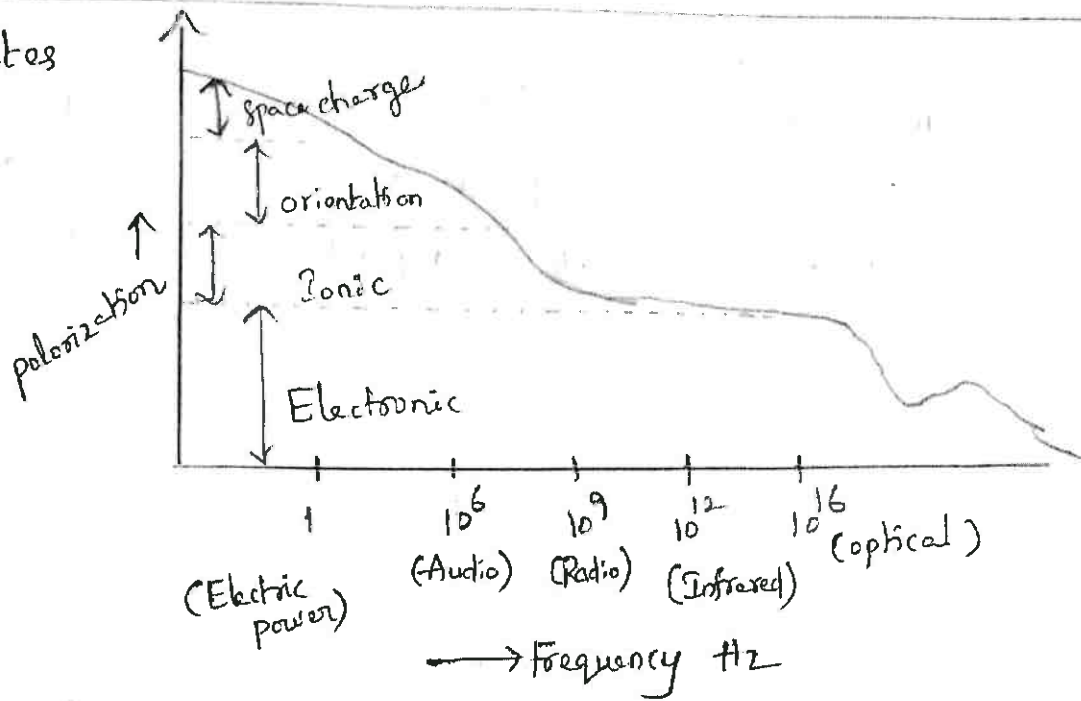 tes
space charge
orientation
Ionic
polarization
Electronic
1 10^6 10^9 10^12 10^16
(Electric power) (Audio) (Radio) (Infrared) (optical)
Frequency Hz